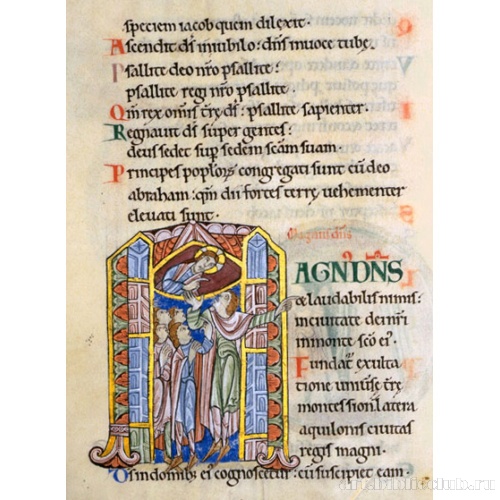 speciem iacob quem dilexit·
Ascendit ds iniubilo: dns inuoce tube·
Psallite deo nro psallite:
psallite regi nro psallite·
Qm rex omis tre ds: psallite sapienter·
Regnauit ds super gentes:
deus sedet sup sedem scam suam·
Principes poplorum congregati sunt cu deo
abraham: qm dii fortes terre uehementer
eleuati sunt·
Magnus dns
MAGN DNS
& laudabilis nimis:
inciuitate dei nri
inmonte sco ei·
Fundat exulta
tione uniuse tre
montes sion: latera
aquilonis ciuitas
regis magni·
Ds indomib ei cognoscetur: cu suscipiet eam·
art.bibleclub.ru